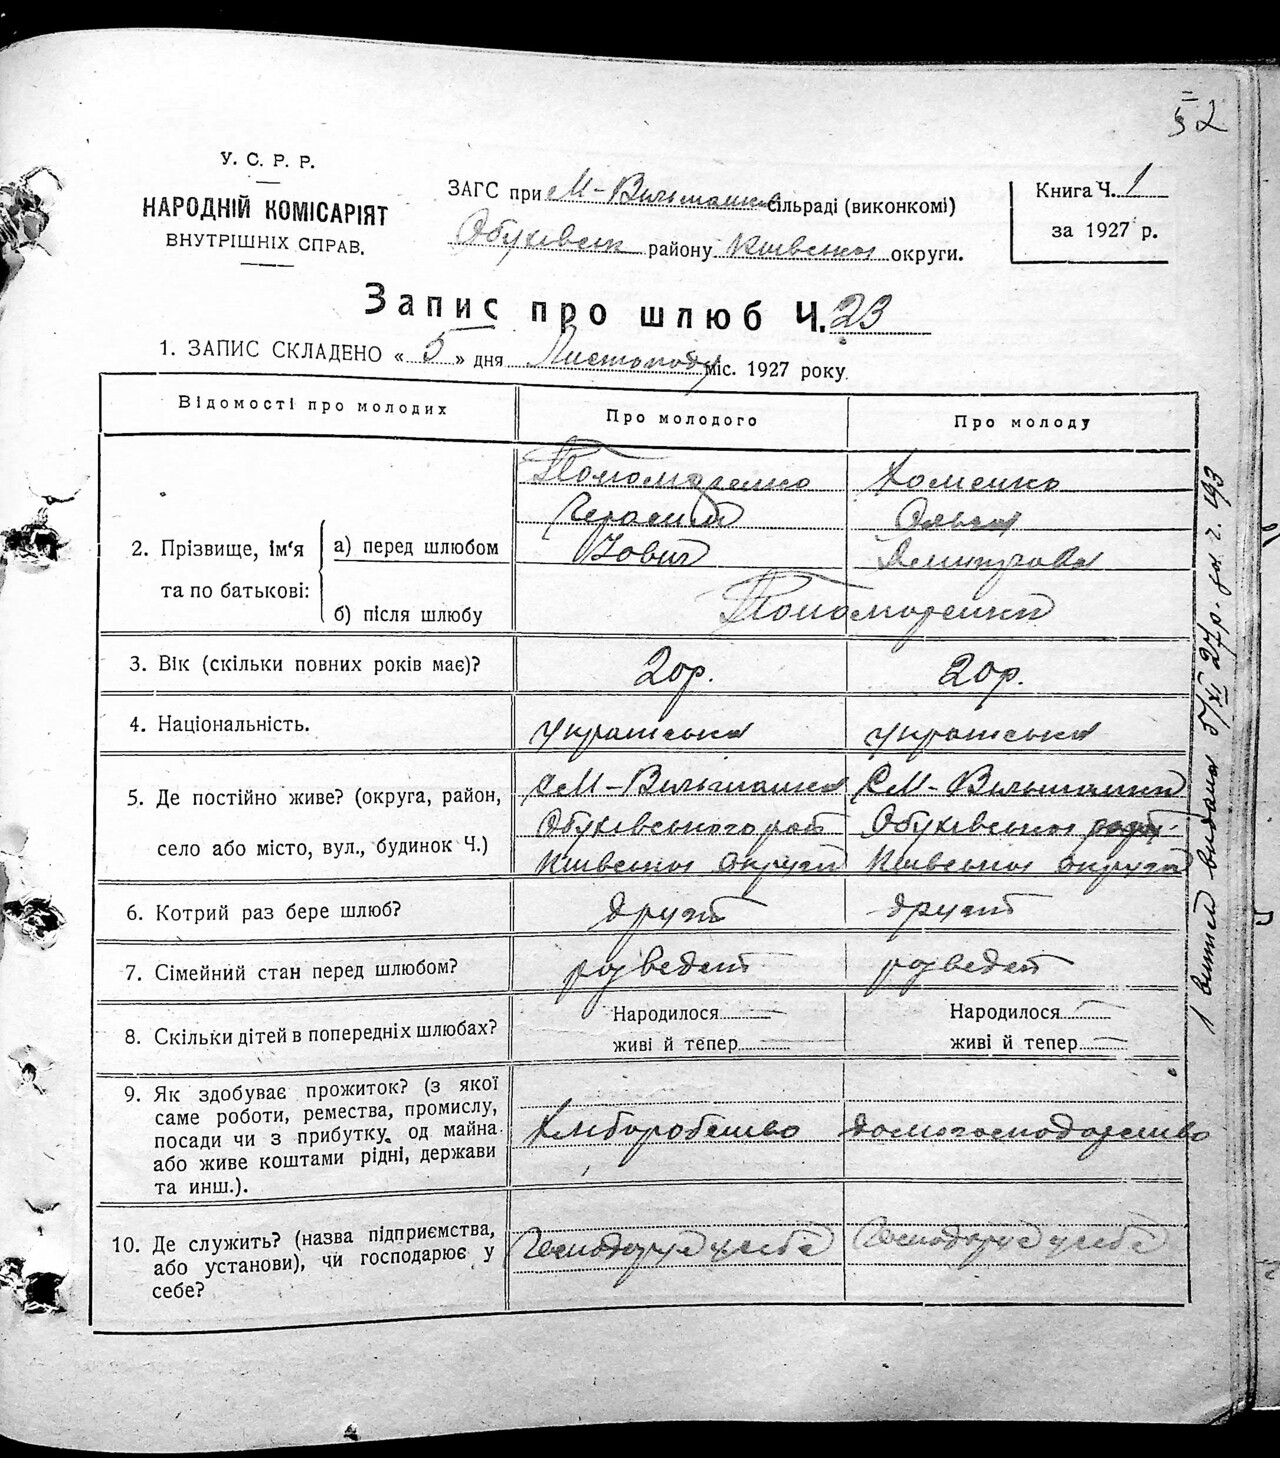 52
У. С. Р. Р.
НАРОДНІЙ КОМІСАРІЯТ
ВНУТРІШНІХ СПРАВ.
ЗАГС при М-Вильшанській сільраді (виконкомі)
Обухівськ району Київської округи.
Книга Ч. 1
за 1927 р.
Запис про шлюб Ч. 23
1. ЗАПИС СКЛАДЕНО « 5 » дня Листопаду міс. 1927 року.
Відомості про молодих
Про молодого
Про молоду
2. Прізвище, ім'я та по батькові:
а) перед шлюбом
Пономаренко
Герасим
Йович
Хоменко
Ольга
Дмитрова
б) після шлюбу
Пономаренки
3. Вік (скільки повних років має)?
20р.
20р.
4. Національність.
українська
українська
5. Де постійно живе? (округа, район,
село або місто, вул., будинок Ч.)
с М-Вильшанка
Обухівського рай
Київської округи
с М-Вильшанки
Обухівської
Київської округи
6. Котрий раз бере шлюб?
другий
другий
7. Сімейний стан перед шлюбом?
розведен
розведен
8. Скільки дітей в попередніх шлюбах?
Народилося —
живі й тепер —
Народилося —
живі й тепер —
9. Як здобуває прожиток? (з якої
саме роботи, ремества, промислу,
посади чи з прибутку, од майна
або живе коштами рідні, держави
та инш.).
Хліборобство
домогосподарство
10. Де служить? (назва підприємства,
або установи), чи господарює у
себе?
Господарує у себе
Господарує у себе
1 витяг видано 5/XI 27р. за ч. 193